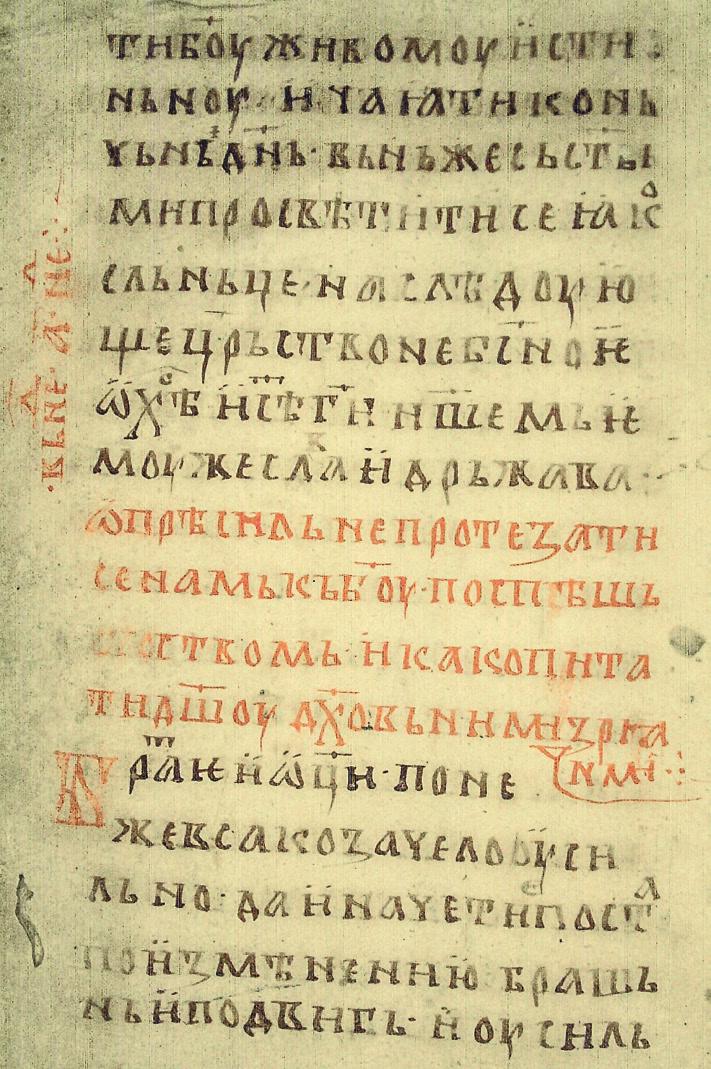 тнбоу жнвомоу нстн
ньноу · н чаꙗтн коньь
чьнѣ дн҃ь · вь нь же сь сты
мн просвѣтнтн се ꙗкⷪ
сльньце · наслѣдоую
ще цр҃ьство нбс҃ноѥ
ѡ хⷭ҇ѣ н͠сѣ г҃н н҃шемь ѥ
моу же сла̑ н дрьжава ·
ѡ прѣснльне протезатн
се намь кь б҃оу · поспѣшь
ствомь н како пнта
тн дш҃оу дх҃овьннмн зрьца
ннмн ·:
Братⷶѥ н ѡц҃н · поне
же всако зачело оуснⷧ
льно · да н начетн постⷶ
по нзмѣненню брашь
нь н подвнгь · н оуснль
· вь неⷣ · а҃ · неⷣ ·: